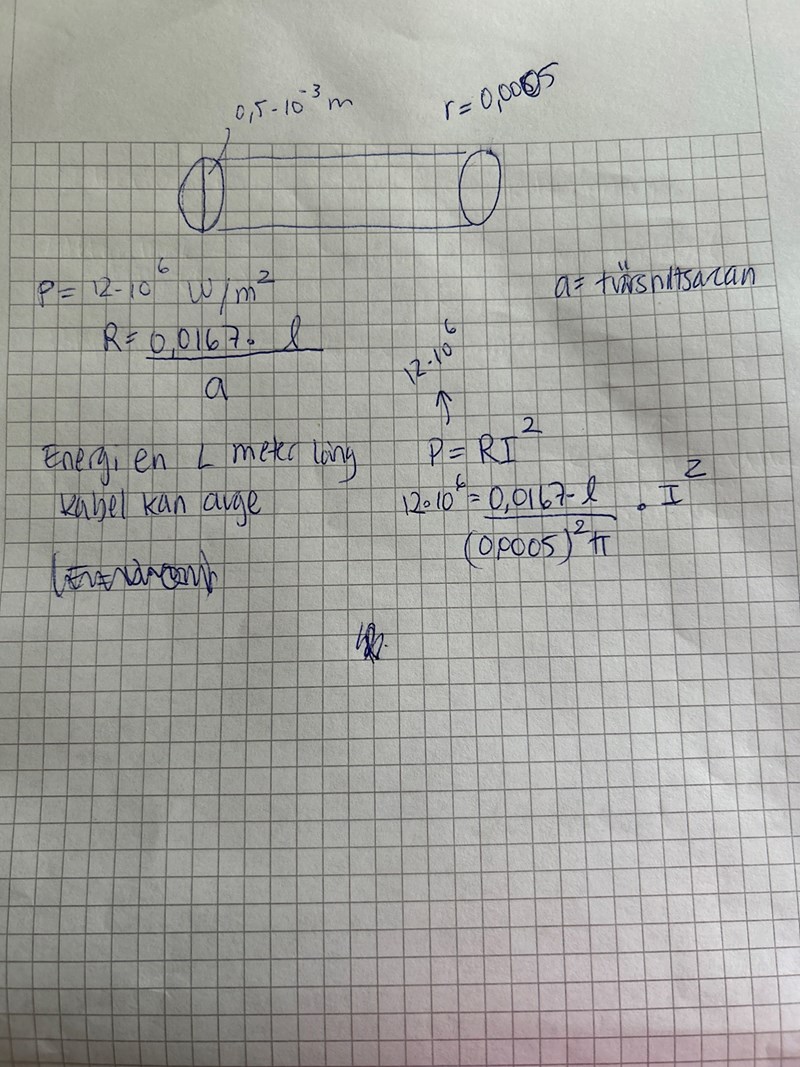 0,5-10⁻³ m
r= 0,0005
P= 12-10⁶ W/m²
a= tvärsnittsaean
R= 0,0167. l
a
12-10⁶
↑
Energi en L meter lång
P= RI²
kabel kan avge
12•10⁶= 0,0167- l . I²
(0,0005)²π